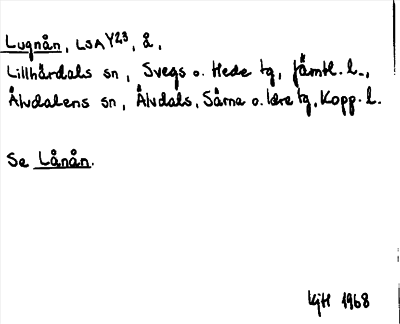 Lugnån, LSA Y23, å,
Lillhärdals sn, Svegs o. Hede tg, Jämtl. l.,
Älvdalens sn, Älvdals, Särna o. Idre tg, Kopp. l.
Se Lånån.
KjH 1968